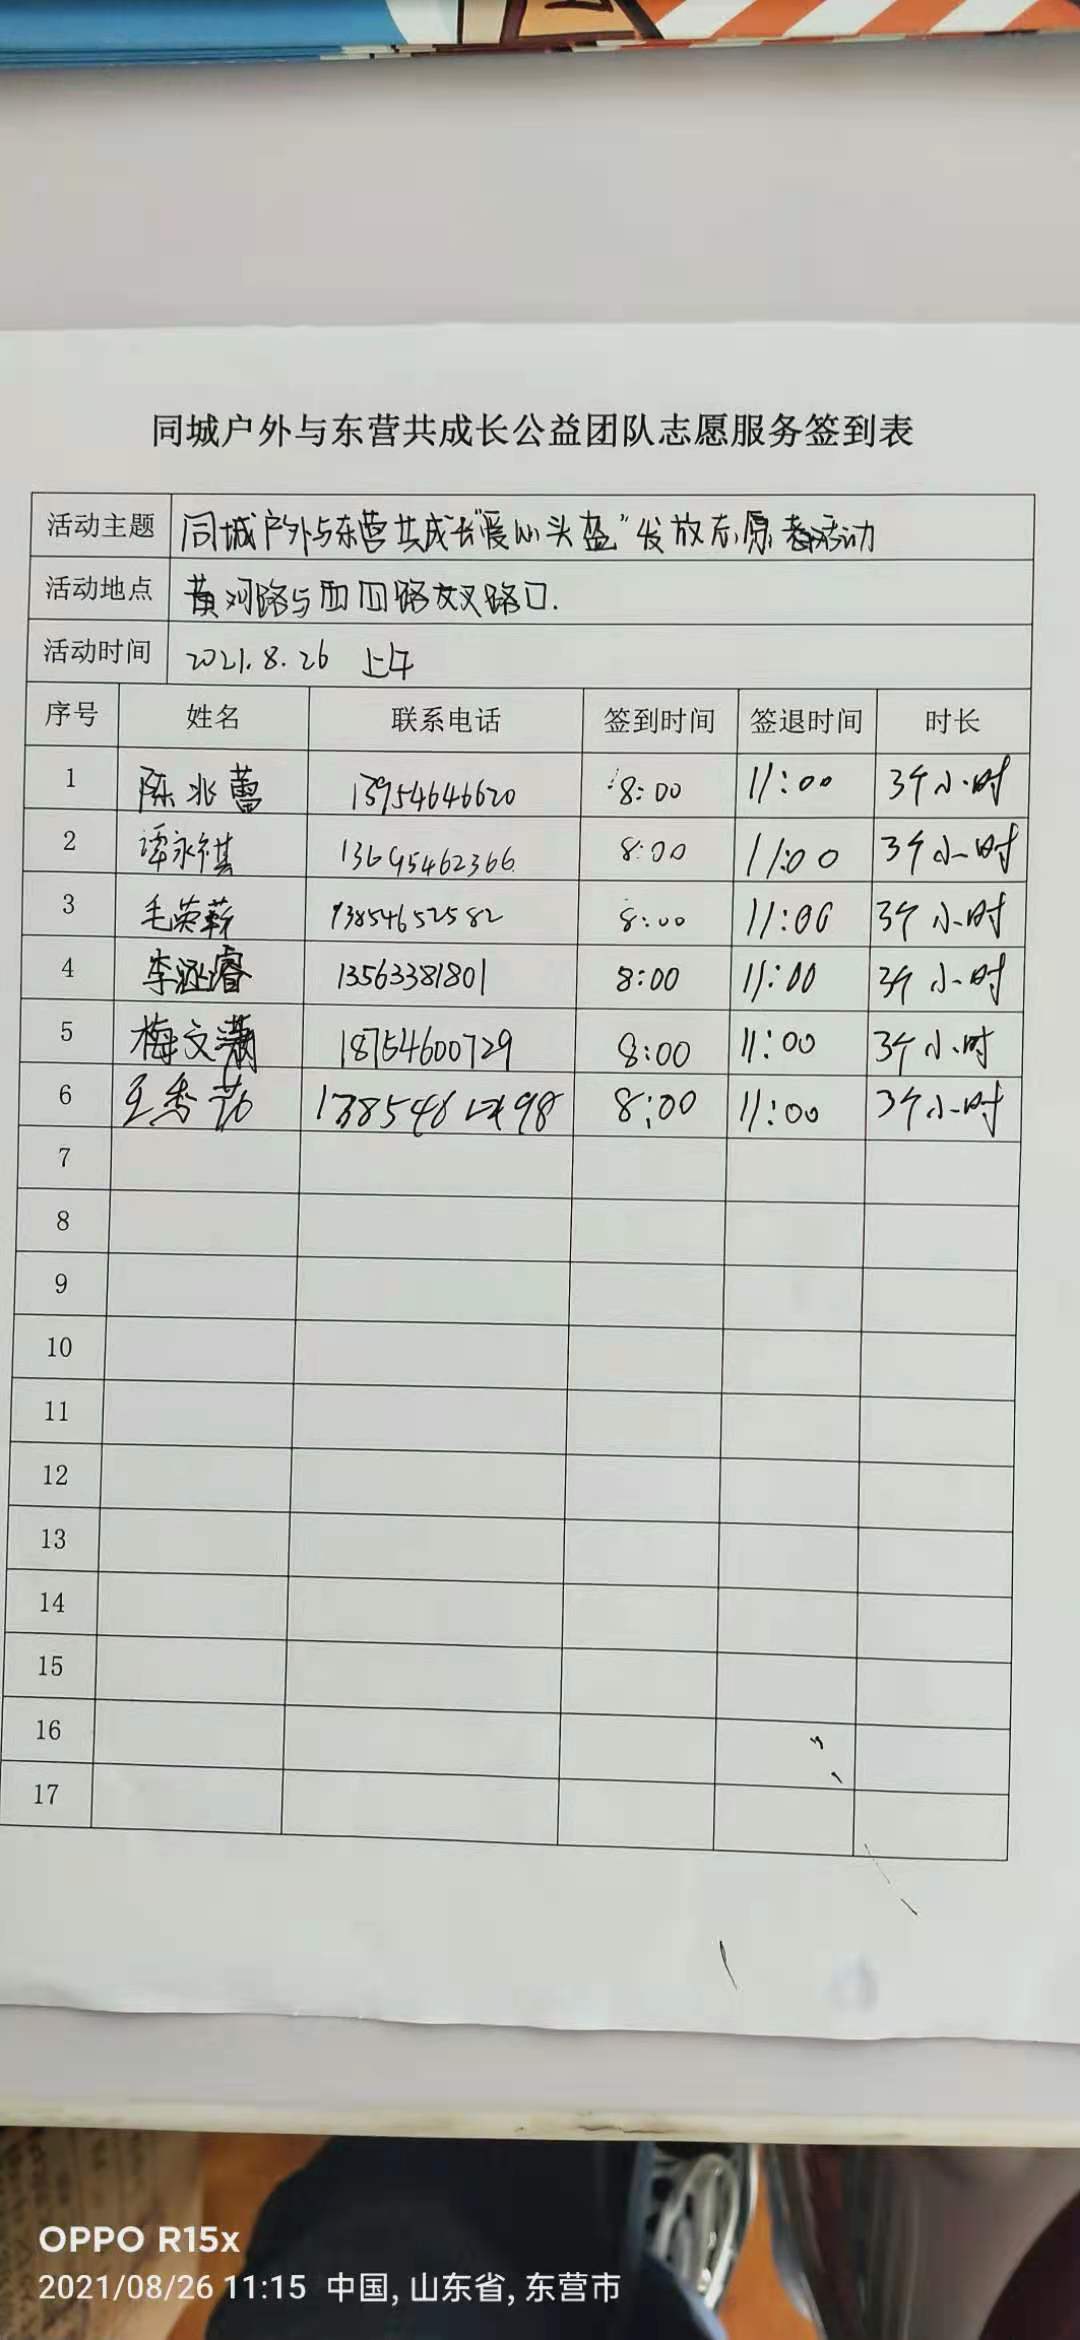 同城户外与东营共成长公益团队志愿服务签到表
活动主题 同城户外与东营共成长"爱心头盔"发放志愿者活动
活动地点 黄河路与西四路交叉路口.
活动时间 2021.8.26 上午
序号 姓名 联系电话 签到时间 签退时间 时长
1 陈兆蕾 13954646620 8:00 11:00 3个小时
2 谭永祺 13695462366 8:00 11:00 3个小时
3 毛英蕲 13854652582 8:00 11:00 3个小时
4 李涵睿 13563381801 8:00 11:00 3个小时
5 梅文潇 18754600729 8:00 11:00 3个小时
6 王秀 8:00 11:00 3个小时
7
8
9
10
11
12
13
14
15
16
17
OPPO R15x
2021/08/26 11:15 中国, 山东省, 东营市